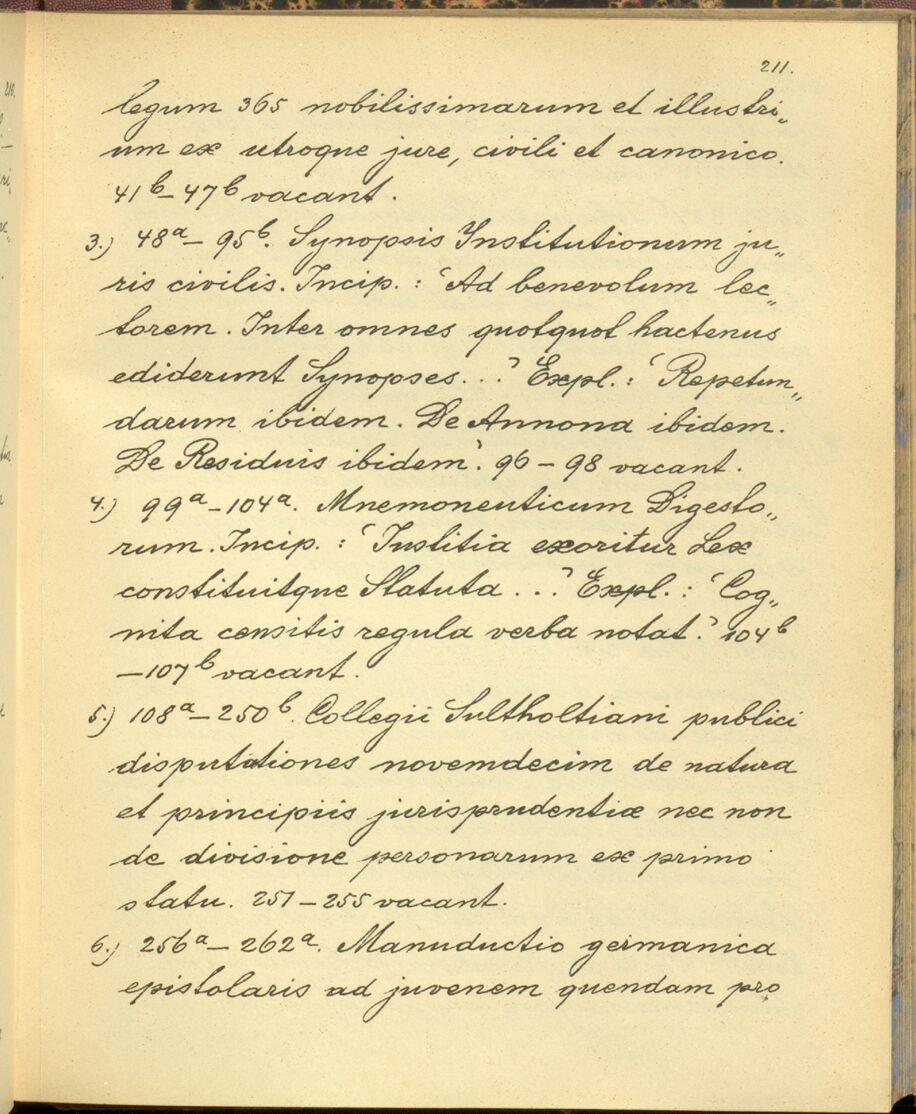 211.
legum 365 nobilissimarum et illustri„
um ex utroque jure, civili et canonico.
41b–47b vacant.
3.) 48a–95b. Synopsis Institutionum ju„
ris civilis. Incip.: ‘Ad benevolum lec„
torem. Inter omnes quotquot hactenus
ediderunt Synopses...’ Expl.: ‘Repetun„
darum ibidem. De Annona ibidem.
De Residuis ibidem’. 96–98 vacant.
4.) 99a–104a. Mnemoneuticum Digesto„
rum. Incip.: ‘Justitia exoritur Lex
constituitque Statuta...’ Expl.: ‘Cog„
nita censitis regula verba notat.’ 104b
–107b vacant.
5.) 108a–250b. Collegii Sultholtiani publici
disputationes novemdecim de natura
et principiis jurisprudentiæ nec non
de divisione personarum ex primo
statu. 251–255 vacant.
6.) 256a–262a. Manuductio germanica
epistolaris ad juvenem quendam pro